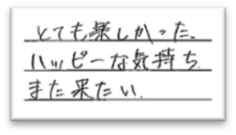 とても楽しかった、
ハッピーな気持ち
また来たい.